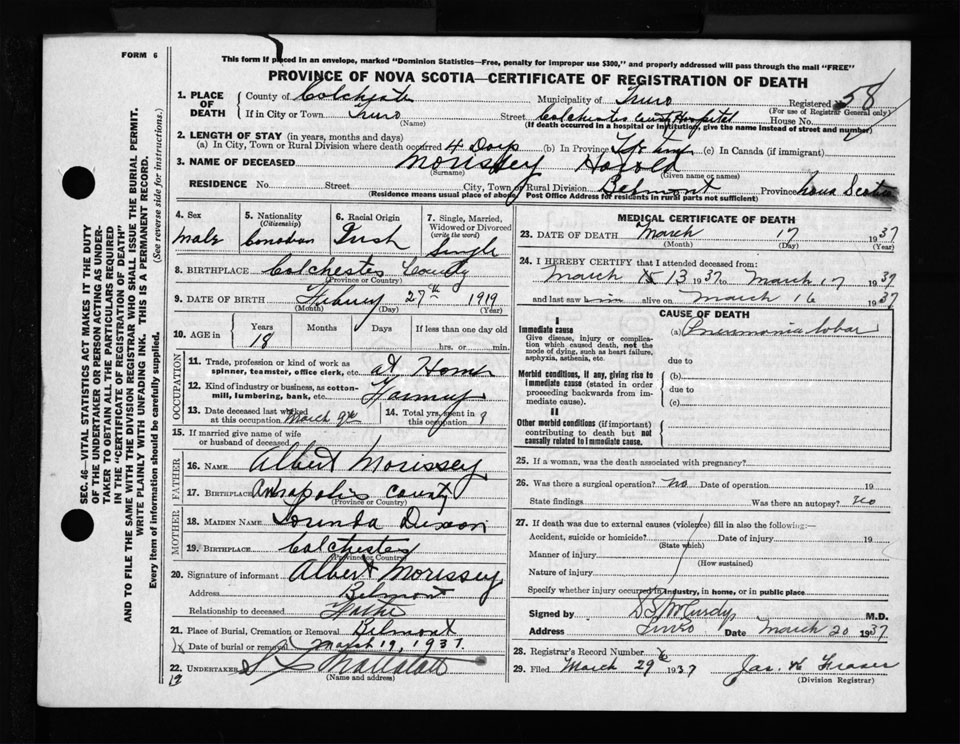 FORM 6
This form if placed in an envelope, marked "Dominion Statistics—Free, penalty for improper use $300," and properly addressed will pass through the mail "FREE"
PROVINCE OF NOVA SCOTIA—CERTIFICATE OF REGISTRATION OF DEATH
SEC. 46—VITAL STATISTICS ACT MAKES IT THE DUTY
OF THE UNDERTAKER OR PERSON ACTING AS UNDER-
TAKER TO OBTAIN ALL THE PARTICULARS REQUIRED
IN THE "CERTIFICATE OF REGISTRATION OF DEATH"
AND TO FILE THE SAME WITH THE DIVISION REGISTRAR WHO SHALL ISSUE THE BURIAL PERMIT.
WRITE PLAINLY WITH UNFADING INK. THIS IS A PERMANENT RECORD.
Every item of information should be carefully supplied. (See reverse side for instructions.)
1. PLACE OF DEATH County of Colchester Municipality of Truro Registered No 58
(For use of Registrar General only)
If in City or Town Truro Street Colchester County Hospital House No.
(Name) (If death occurred in a hospital or institution, give the name instead of street and number)
2. LENGTH OF STAY (in years, months and days)
(a) In City, Town or Rural Division where death occurred 4 Days (b) In Province Life Time (c) In Canada (if immigrant)
3. NAME OF DECEASED Morissey Harold
(Surname) (Given name or names)
RESIDENCE No. Street City, Town or Rural Division Belmont Province Nova Scotia
(Residence means usual place of abode, Post Office Address for residents in rural parts not sufficient)
4. Sex Male
5. Nationality (Citizenship) Canadian
6. Racial Origin Irish
7. Single, Married, Widowed or Divorced (write the word) Single
8. BIRTHPLACE Colchester County
(Province or Country)
9. DATE OF BIRTH 27th 1919
(Month) (Day) (Year)
10. AGE in Years 18 Months Days If less than one day old hrs. or min.
OCCUPATION
11. Trade, profession or kind of work as spinner, teamster, office clerk, etc. at Home
12. Kind of industry or business, as cotton-mill, lumbering, bank, etc. Farming
13. Date deceased last worked at this occupation March 9th 14. Total yrs. spent in
15. If married give name of wife or husband of deceased
FATHER
16. NAME Albert Morissey
17. BIRTHPLACE Annapolis County
(Province or Country)
MOTHER
18. MAIDEN NAME Lorinda
19. BIRTHPLACE Colchester
(Province or Country)
20. Signature of informant Albert Morissey
Address Belmont
Relationship to deceased Father
21. Place of Burial, Cremation or Removal Belmont
Date of burial or removal March 19, 1937.
22. UNDERTAKER
(Name and address)
MEDICAL CERTIFICATE OF DEATH
23. DATE OF DEATH March 17 1937
(Month) (Day) (Year)
24. I HEREBY CERTIFY that I attended deceased from:
March 13 1937 to March 17 1937
and last saw him alive on March 16 1937
CAUSE OF DEATH
I
Immediate cause
Give disease, injury or complication which caused death, not the mode of dying, such as heart failure, asphyxia, asthenia, etc.
(a) Pneumonia lobar
due to
Morbid conditions, if any, giving rise to immediate cause (stated in order proceeding backwards from immediate cause).
(b)
due to
(c)
II
Other morbid conditions (if important) contributing to death but not causally related to immediate cause.
25. If a woman, was the death associated with pregnancy?
26. Was there a surgical operation? no Date of operation 19
State findings Was there an autopsy? no
27. If death was due to external causes (violence) fill in also the following:—
Accident, suicide or homicide? Date of injury 19
(State which)
Manner of injury
(How sustained)
Nature of injury
Specify whether injury occurred in industry, in home, or in public place
Signed by M.D.
Address Truro Date March 20 1937
28. Registrar's Record Number
29. Filed March 29th 1937 Jas. Fraser
(Division Registrar)